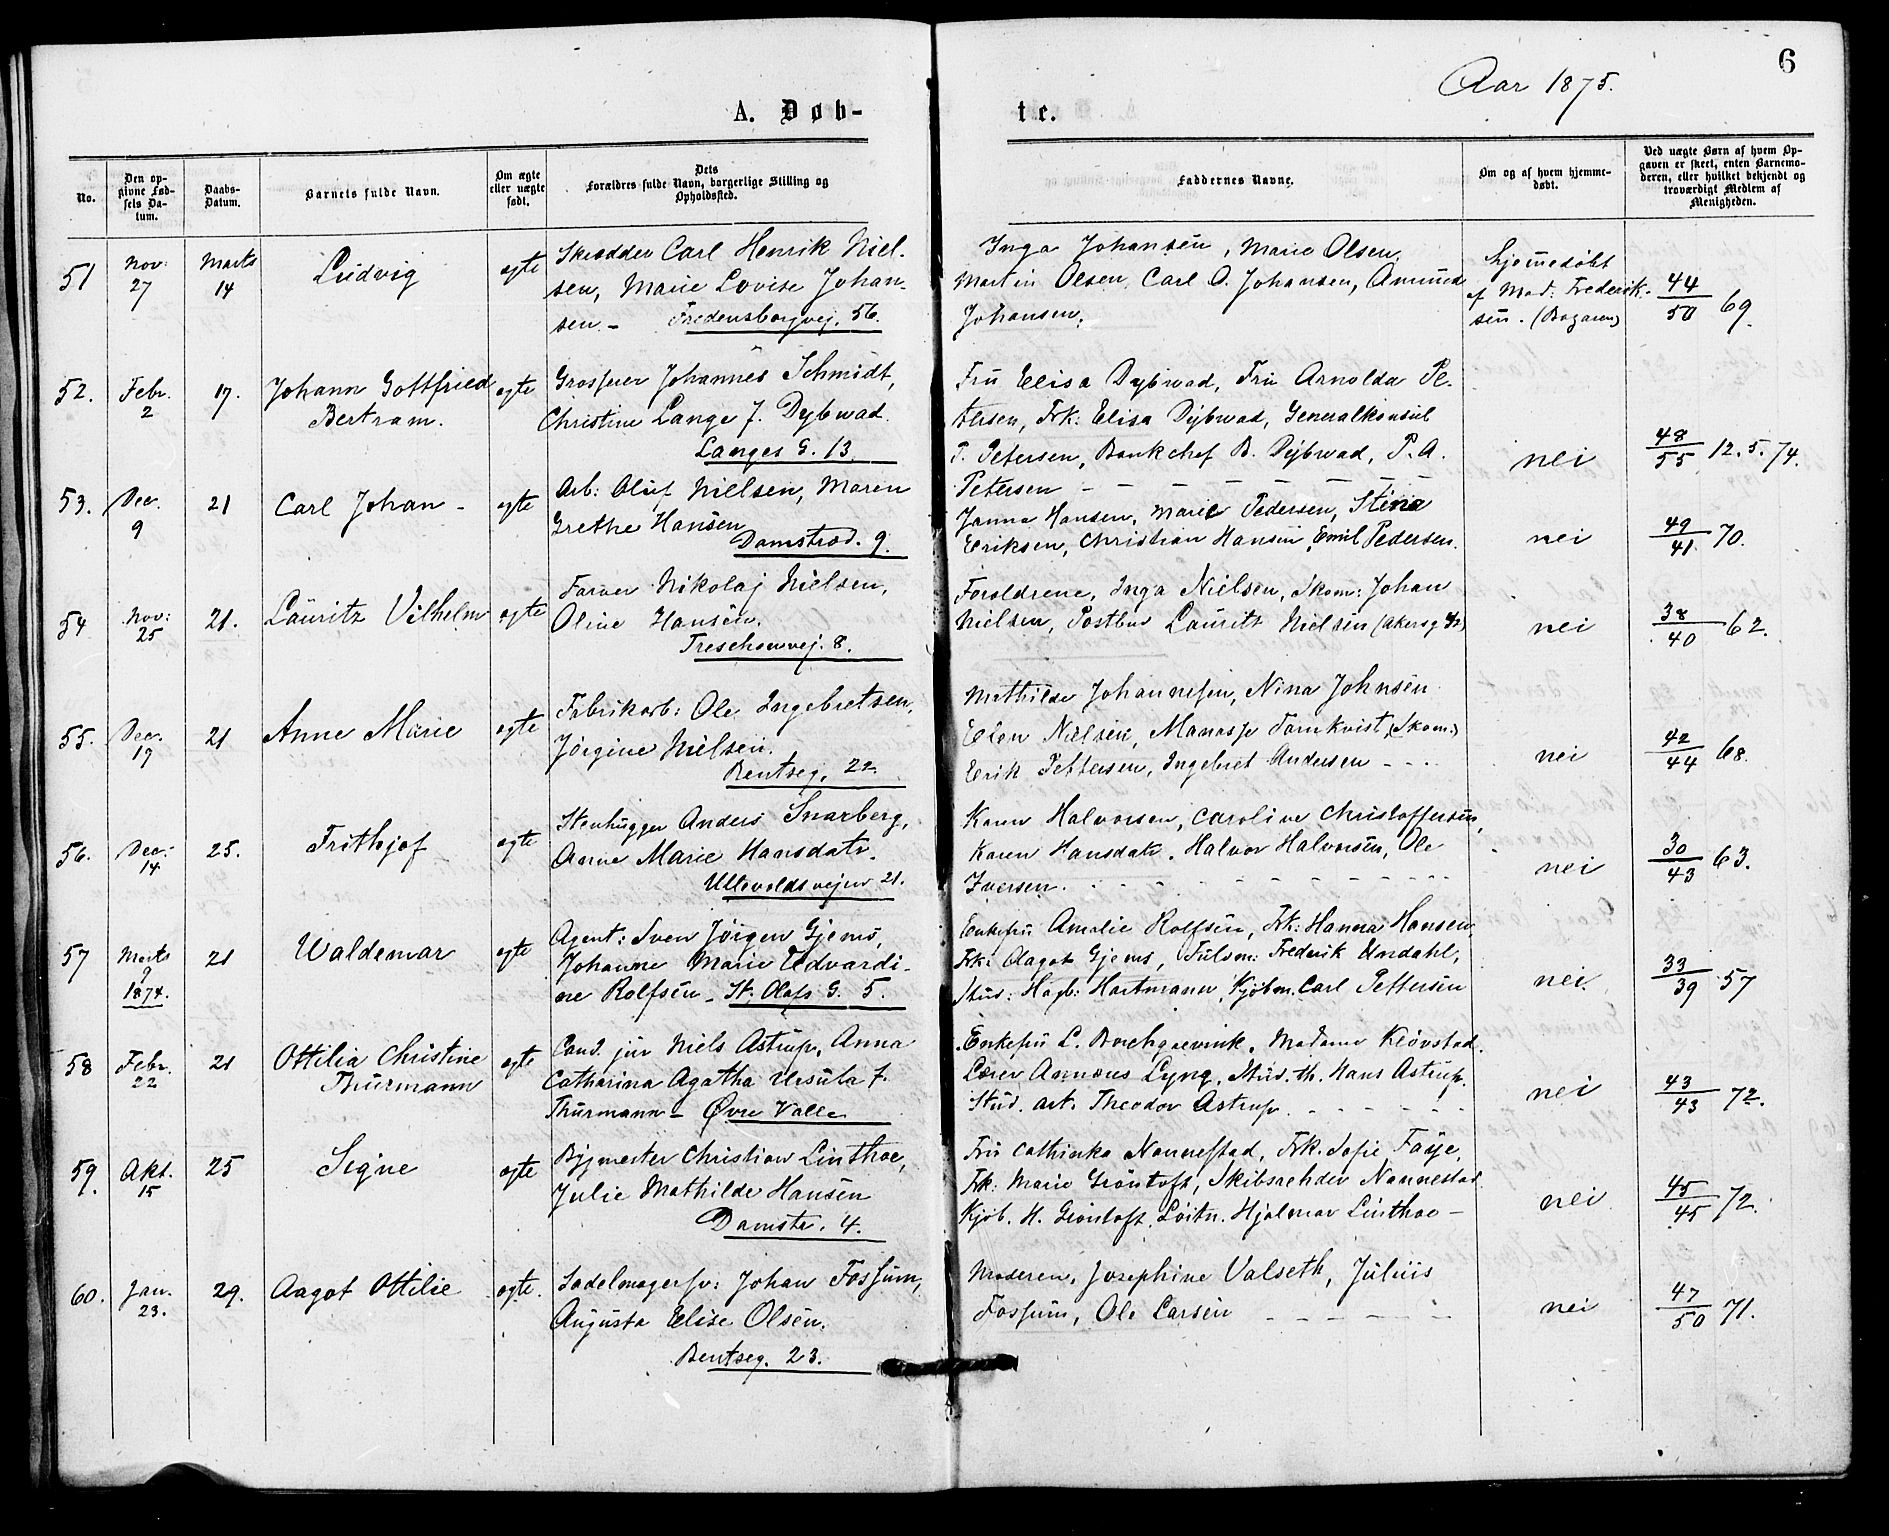 6
Aar 1875.
A. Døb-
te.
No.
Den op-
givne Fød-
sels Da-
tum.
Daabs-
Datum.
Barnets fulde Navn.
Om ægte
eller uægte
født.
Dets
Forældres fulde Navn, borgerlige Stilling og
Opholdssted.
Faddernes Navne.
Om og af hvem hjemme-
døbt.
Ved uægte Børn af hvem Op-
gaven er skeet, enten Barnemo-
deren, eller hvilket bekjendt og
troværdigt Medlem af
Menigheden.
51
Nov:
27
Marts
14
Ludvig
ægte
Skrædder Carl Henrik Niel-
sen, Marie Lovise Johan-
sen – Fredensborgvej. 56.
Inga Johansen, Marie Olsen,
Martin Olsen, Carl O. Johansen, Amund
Johansen.
hjemedøbt
af Mad: Frederik-
sen.
44
50 69.
52.
Febr.
2
17.
Johann Gottfried
Bertram.
ægte
Grosserer Johannes Schmidt,
Christine Lange f. Dybwad.
Langes G. 13.
Fru Elisa Dybwad, Fru Arnolda Pe-
tersen, Frk: Elisa Dybwad, Generalkonsul
T. Petersen, Bankchef B. Dybwad, P. A.
Petersen – – – – – –
nei
48
55 12. 5. 74.
53.
Dec.
9
21
Carl Johan –
ægte
Arb: Oluf Nielsen, Maren
Grethe Hansen
Damstræd. 9.
Janna Hansen, Marie Pedersen, Stina
Eriksen, Christian Hansen, Emil Pedersen.
nei
49
41. 70.
54
Nov:
25
21.
Lauritz Vilhelm
ægte
Farver Nikolaj Nielsen,
Oline Hansen.
Treschowsvej. 8.
Forældrene, Inga Nielsen, Skom: Johan
Nielsen, Postbud Lauritz Nielsen
nei
38
40 62.
55.
Dec.
19
21
Anne Marie
ægte
Fabrikarb: Ole Ingebretsen,
Jørgine Nielsen.
Bentseg. 22.
Mathilde Johannessen, Nina Johnsen
Elen Nielsen, Manasse Tarnkvist, (Skom:)
Erik Pettersen, Ingebret Andersen – – –
nei
42
44 68.
56.
Dec:
14
25.
Frithjof
ægte
Stenhugger Anders Snarberg,
Anne Marie Hansdatr.
Ullevoldsvejen 21.
Karen Halvorsen, Caroline Christoffersen,
Karen Hansdatr. Halvor Halvorsen, Ole
Iversen.
nei
30
43 63.
57
Marts
9
1874.
21
Waldemar
ægte
Agent: Sven Jørgen Gjems,
Johanne Marie Edvardi-
ne Rolfsen – St. Olafs G. 5.
Enkefru Amalie Rolfsen, Frk: Hanna Hansen,
Frk: Aagot Gjems, Fuldm: Frederik Undahl,
Stud: Hagb: Hartmann, Kjøbm. Carl Pettersen
nei.
33
39 57
58
Febr.
22
21
Ottilia Christine
Thurmann
ægte
Cand. jur Niels Astrup, Anna
Catharina Agatha Ursula f.
Thurmann – Øvre Volle
Enkefru L. Borchgrevink, Madame Kløvstad.
Lærer Annæus Lyng, Stud. th. Hans Astrup.
Stud. art. Theodor Astrup. – – – – – –
nei
43
43 72.
59.
Okt.
15
25
Signe
ægte
Bygmester Christian Linthoe,
Julie Mathilde Hansen
Damstr. 4.
Fru Cathinka Nannestad, Frk. Sofie Faye,
Frk: Marie Grøntoft, Skibsrehder Nannestad.
Kjøb. H. Grøntoft, Løitn. Hjalmar Linthoe –
nei
45
45 72.
60.
Jan.
23.
29.
Aagot Ottilie
ægte.
Sadelmagersv: Johan Fossum,
Augusta Elise Olsen.
Bentseg. 23.
Moderen, Josephine Valseth, Julius
Fossum, Ole Larsen – – – – – –
nei
47
50 71.